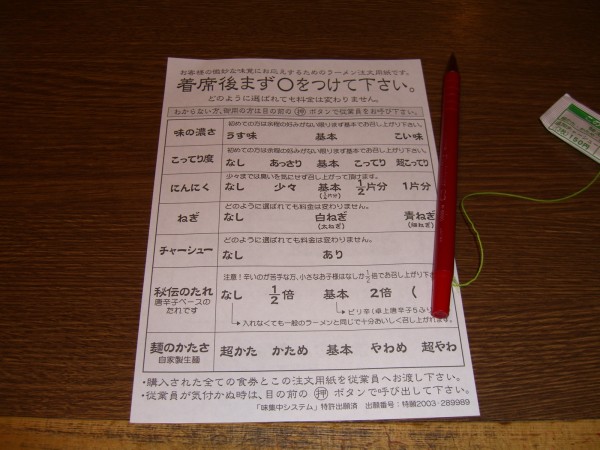 お客様の微妙な味覚にお応えするためのラーメン注文用紙です。
着席後まず○をつけて下さい。
どのように選ばれても料金は変わりません。
わからない方、御用の方は目の前の 押 ボタンで従業員をお呼び下さい。
味の濃さ
初めての方は余程の好みがない限りまず基本でお召し上がり下さい。
うす味 基本 こい味
こってり度
初めての方は余程の好みがない限りまず基本でお召し上がり下さい。
なし あっさり 基本 こってり 超こってり
にんにく
少々までは臭いを気にせず召し上がって頂けます。
なし 少々 基本 1/2片分 1片分
ねぎ
どのように選ばれても料金は変わりません。
なし 白ねぎ 青ねぎ
(太ねぎ) (細ねぎ)
チャーシュー
どのように選ばれても料金は変わりません。
なし あり
秘伝のたれ
唐辛子ベースの
たれです
注意!辛いのが苦手な方、小さなお子様はなしか1/2倍でお召し上がり下さ
なし 1/2倍 基本 2倍 (
ピリ辛(卓上唐辛子5ふり
入れなくても一般のラーメンと同じで十分おいしく召し上がれます。
麺のかたさ
自家製生麺
超かた かため 基本 やわめ 超やわ
・購入された全ての食券とこの注文用紙を従業員へお渡し下さい。
・従業員が気付かぬ時は、目の前の 押 ボタンで呼び出して下さい。
「味集中システム」特許出願済 出願番号:特願2003-289989